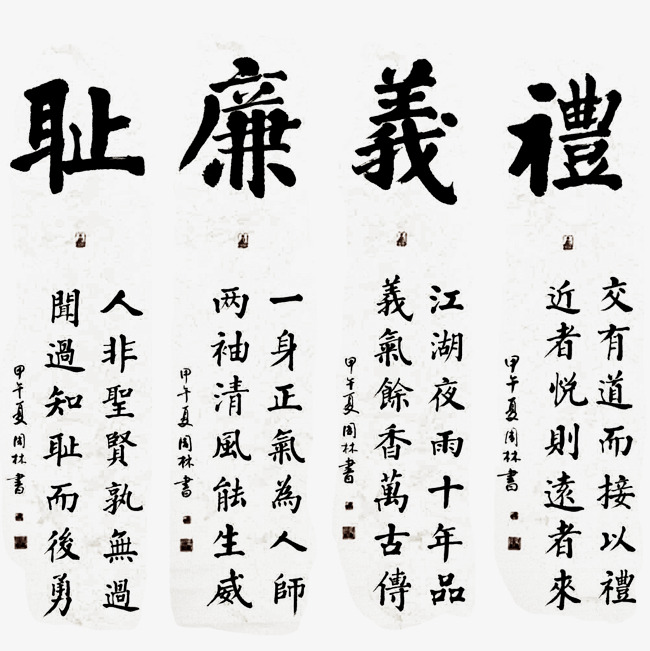 禮
交有道而接以禮
近者悦則遠者來
甲午夏周林書
義
江湖夜雨十年品
義氣餘香萬古傳
甲午夏周林書
廉
一身正氣為人師
两袖清風能生威
甲午夏周林書
耻
人非聖賢孰無過
聞過知耻而後勇
甲午夏周林書